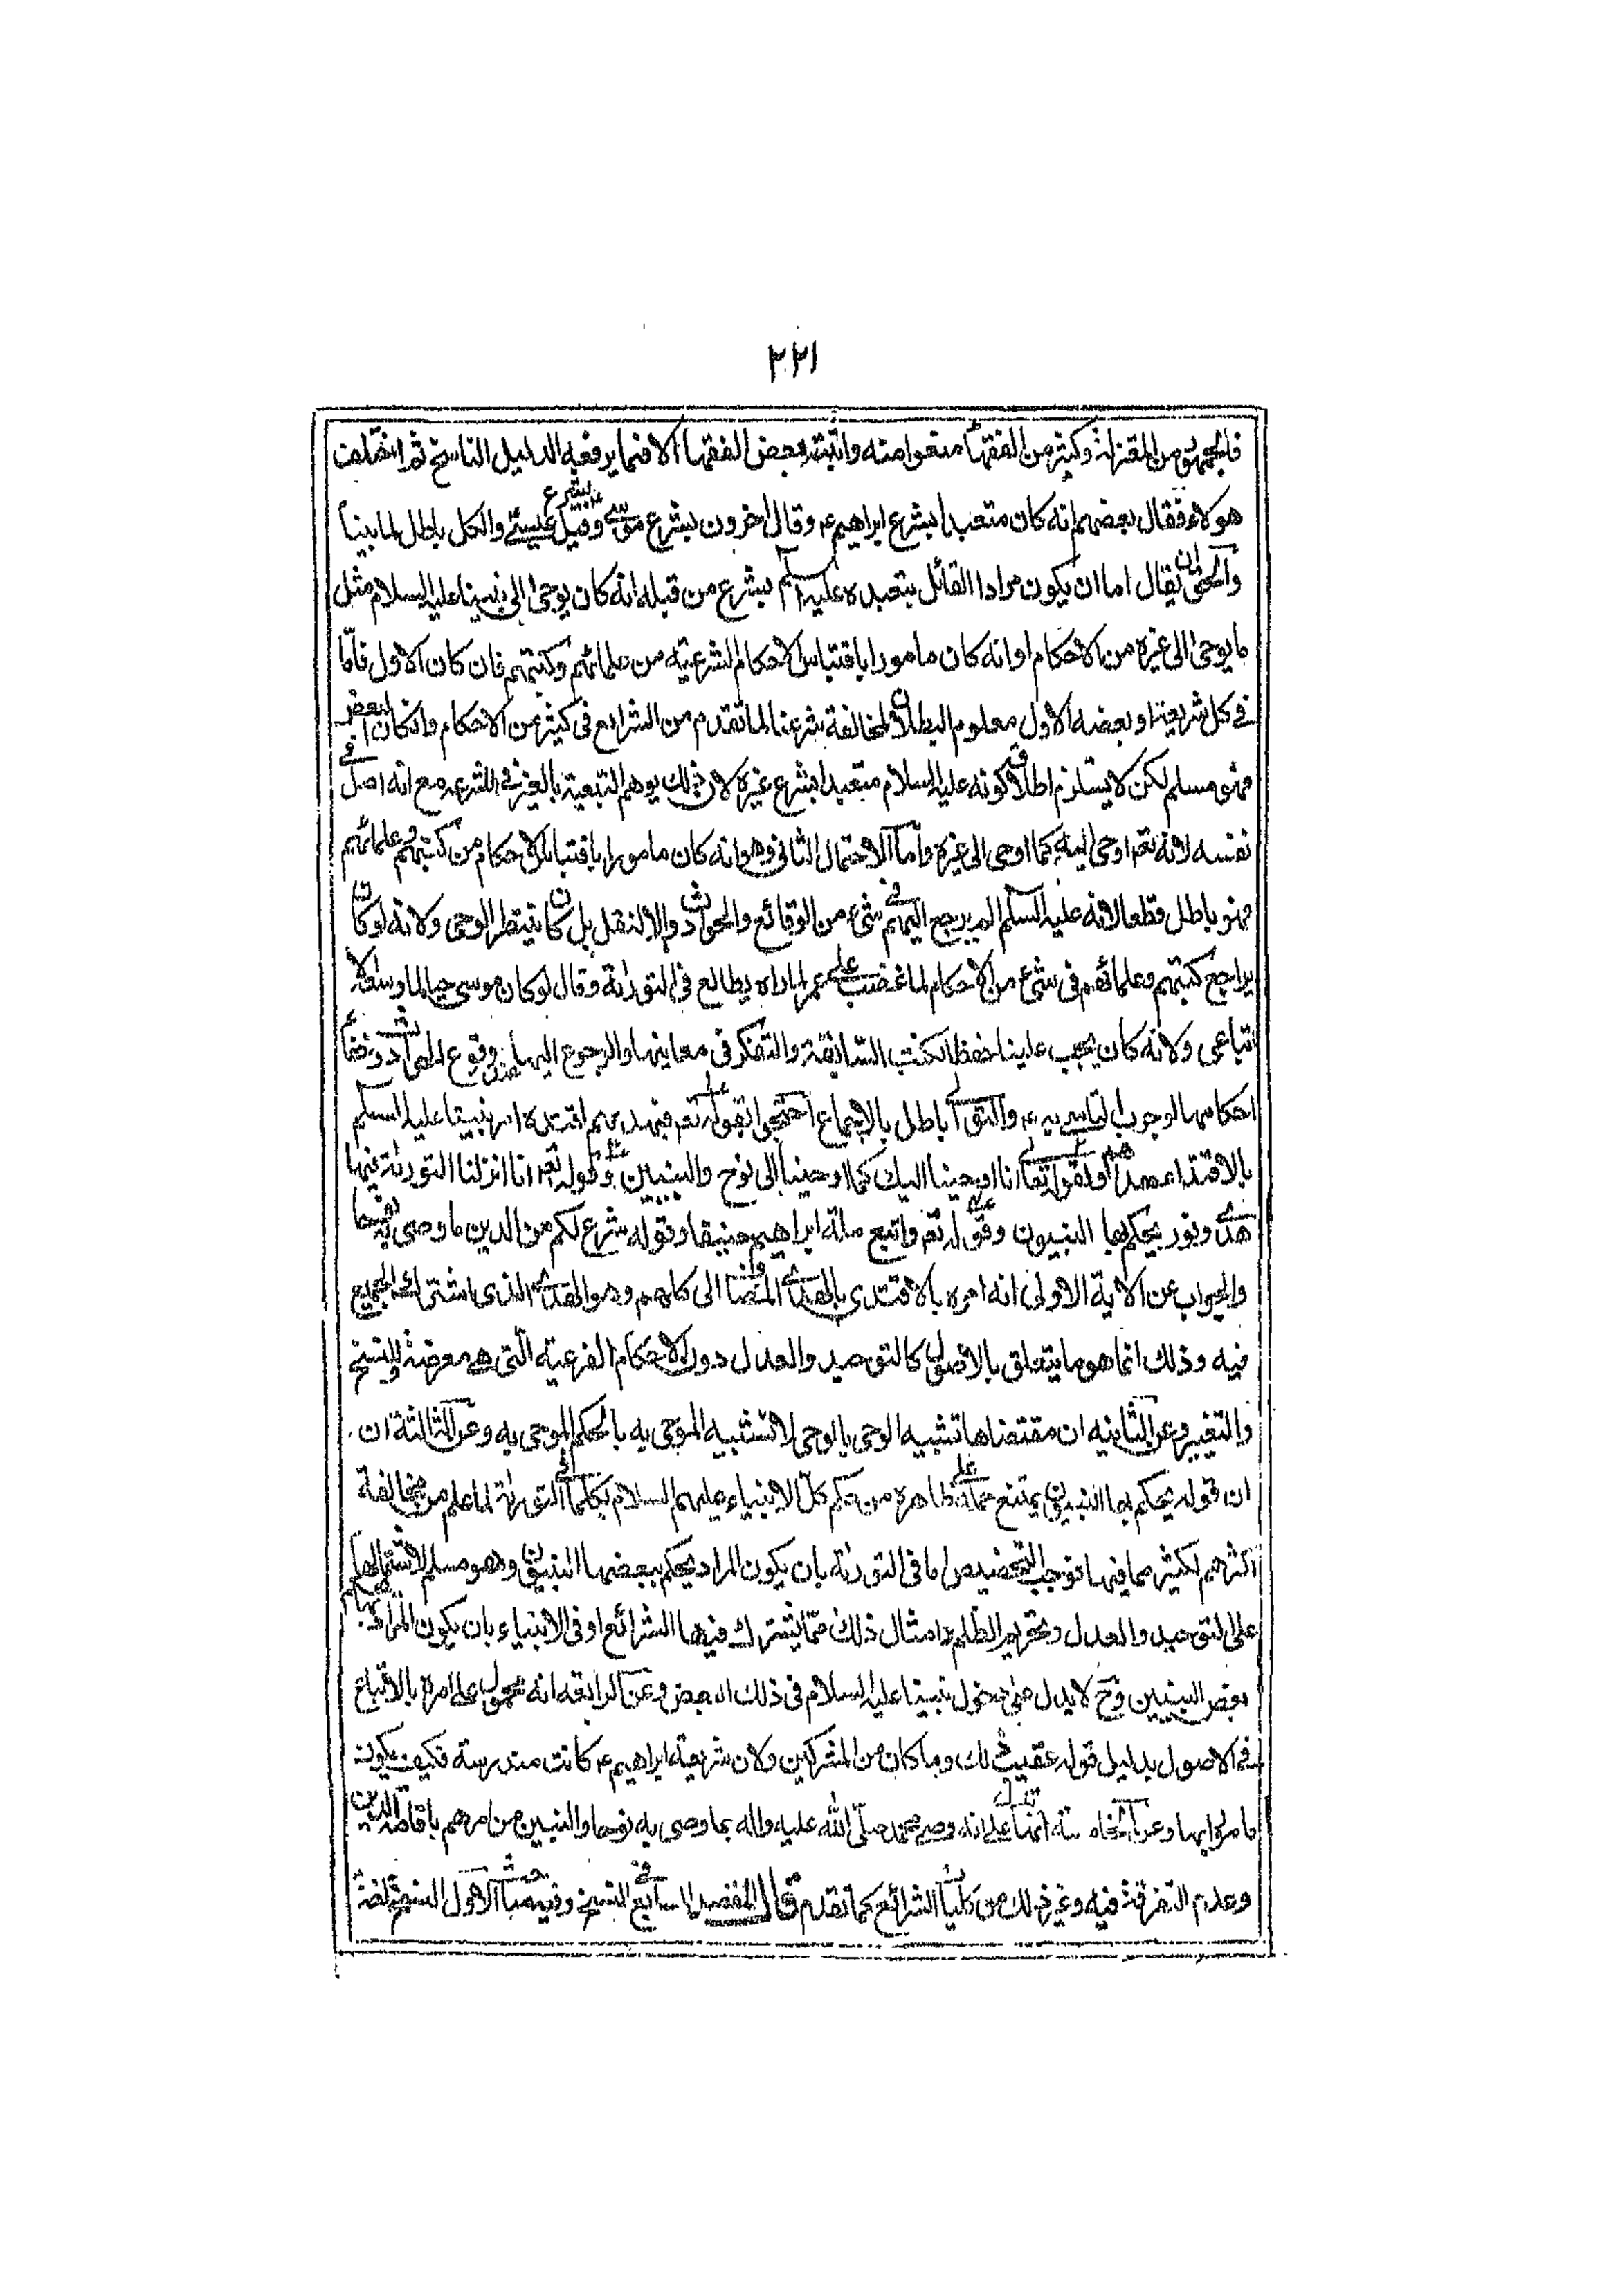 ٢٢١
فالجمهور من المعتزلة وكثير من الفقهاء منعوا منه واثبته بعض الفقهاء الا فيما يرفعه الدليل الناسخ ثم اختلف
هولاء فقال بعضهم انه كان متعبدا بشرع ابراهيم ع وقال اخرون بشرع موسى وقيل بشرع عيسى والكل باطل لما بينا
والحق ان يقال اما ان يكون مراد القائل بتعبده عليه السلم بشرع من قبله انه كان يوحى الى نبينا عليه السلام مثل
ما يوحى الى غيره من الاحكام او انه كان مامورا باقتباس الاحكام الشرعية من علمائهم وكتبهم فان كان الاول فامّا
في كل شريعة او بعضه الاول معلوم البطلان لمخالفة شرعنا لما تقدم من الشرايع في كثير من الاحكام وانكان البعض
فهو مسلم لكن لا يستلزم اطلاق كونه عليه السلام متعبدا بشرع غيره لان ذلك يوهم التبعية بالغير في الشرع مع انه اصل في
نفسه لانه تعم اوحى اليه كما اوحى الى غيره واما الاحتمال الثاني وهو انه كان مامورا باقتباس الاحكام من كتبهم وعلمائهم
فهو باطل قطعا لانه عليه السلم لم يرجع اليهم في شئ من الوقائع والحوادث والا لنقل بل كان ينتظر الوحى ولانه لو كان
يراجع كتبهم وعلمائهم في شئ من الاحكام لما غضب على عمر لما راه يطالع في التورية وقال لو كان موسى حيا لما وسعه الا
اتباعى ولانه كان يجب علينا حفظ الكتب السابقة والتفكر في معانيها والرجوع اليها عند وقوع الحوادث وتضمنها
احكامها لوجوب التاسي به ع والتالى باطل بالاجماع احتجوا بقوله تعم فبهديهم اقتده امر نبينا عليه السلم
بالاقتداء بهداهم ولقوله تعالى انا اوحينا اليك كما اوحينا الى نوح والنبيين وقوله تعم انا انزلنا التورية فيها
هدى ونور يحكم بها النبيون وقوله تعم واتبع ملة ابراهيم حنيفا وقوله شرع لكم من الدين ما وصى به نوحا
والجواب عن الاية الاولى انه امره بالاقتدى بالهدى المضاف الى كلهم وهو الهدى الذى اشترك الجميع
فيه وذلك انما هو ما يتعلق بالاصول كالتوحيد والعدل دون الاحكام الفرعية التى هى معرضة للنسخ
والتغيير وعن الثانيه ان مقتضاها تشبيه الوحى بالوحى لا تشبيه الموحى به بالحكم الموحى به وعن الثالثة ان
ان قوله يحكم بها النبيون يمتنع حمله على ظاهره من حكم كل الانبياء عليهم السلام بكلما في التورية لما علم من مخالفة
اكثرهم لكثير مما فيها فوجب التخصيص اما في التورية بان يكون المراد يحكم ببعضها النبيون وهو مسلم لاشتمالها
على التوحيد والعدل وتحريم الظلم وامثال ذلك ممّا يشترك فيها الشرائع او في الانبياء بان يكون المراد يحكم بها
بعض النبيين وح لا يدل على دخول نبينا عليه السلام في ذلك البعض وعن الرابعه انه محمول على امره بالاتباع
في الاصول بدليل قوله عقيب ذلك وما كان من المشركين ولان شريعة ابراهيم ع كانت مندرسة فكيف يكون
مامورا بها وعن الخامسة انها تدل على انه وصى محمد صلّى الله عليه واله بما وصى به نوحا والنبيين من امرهم باقامة الدين
وعدم التفرقة فيه وغير ذلك من كليات الشرائع كما تقدم قال المقصد السابع في النسخ وفيه مباحث الاول النسخ لغة